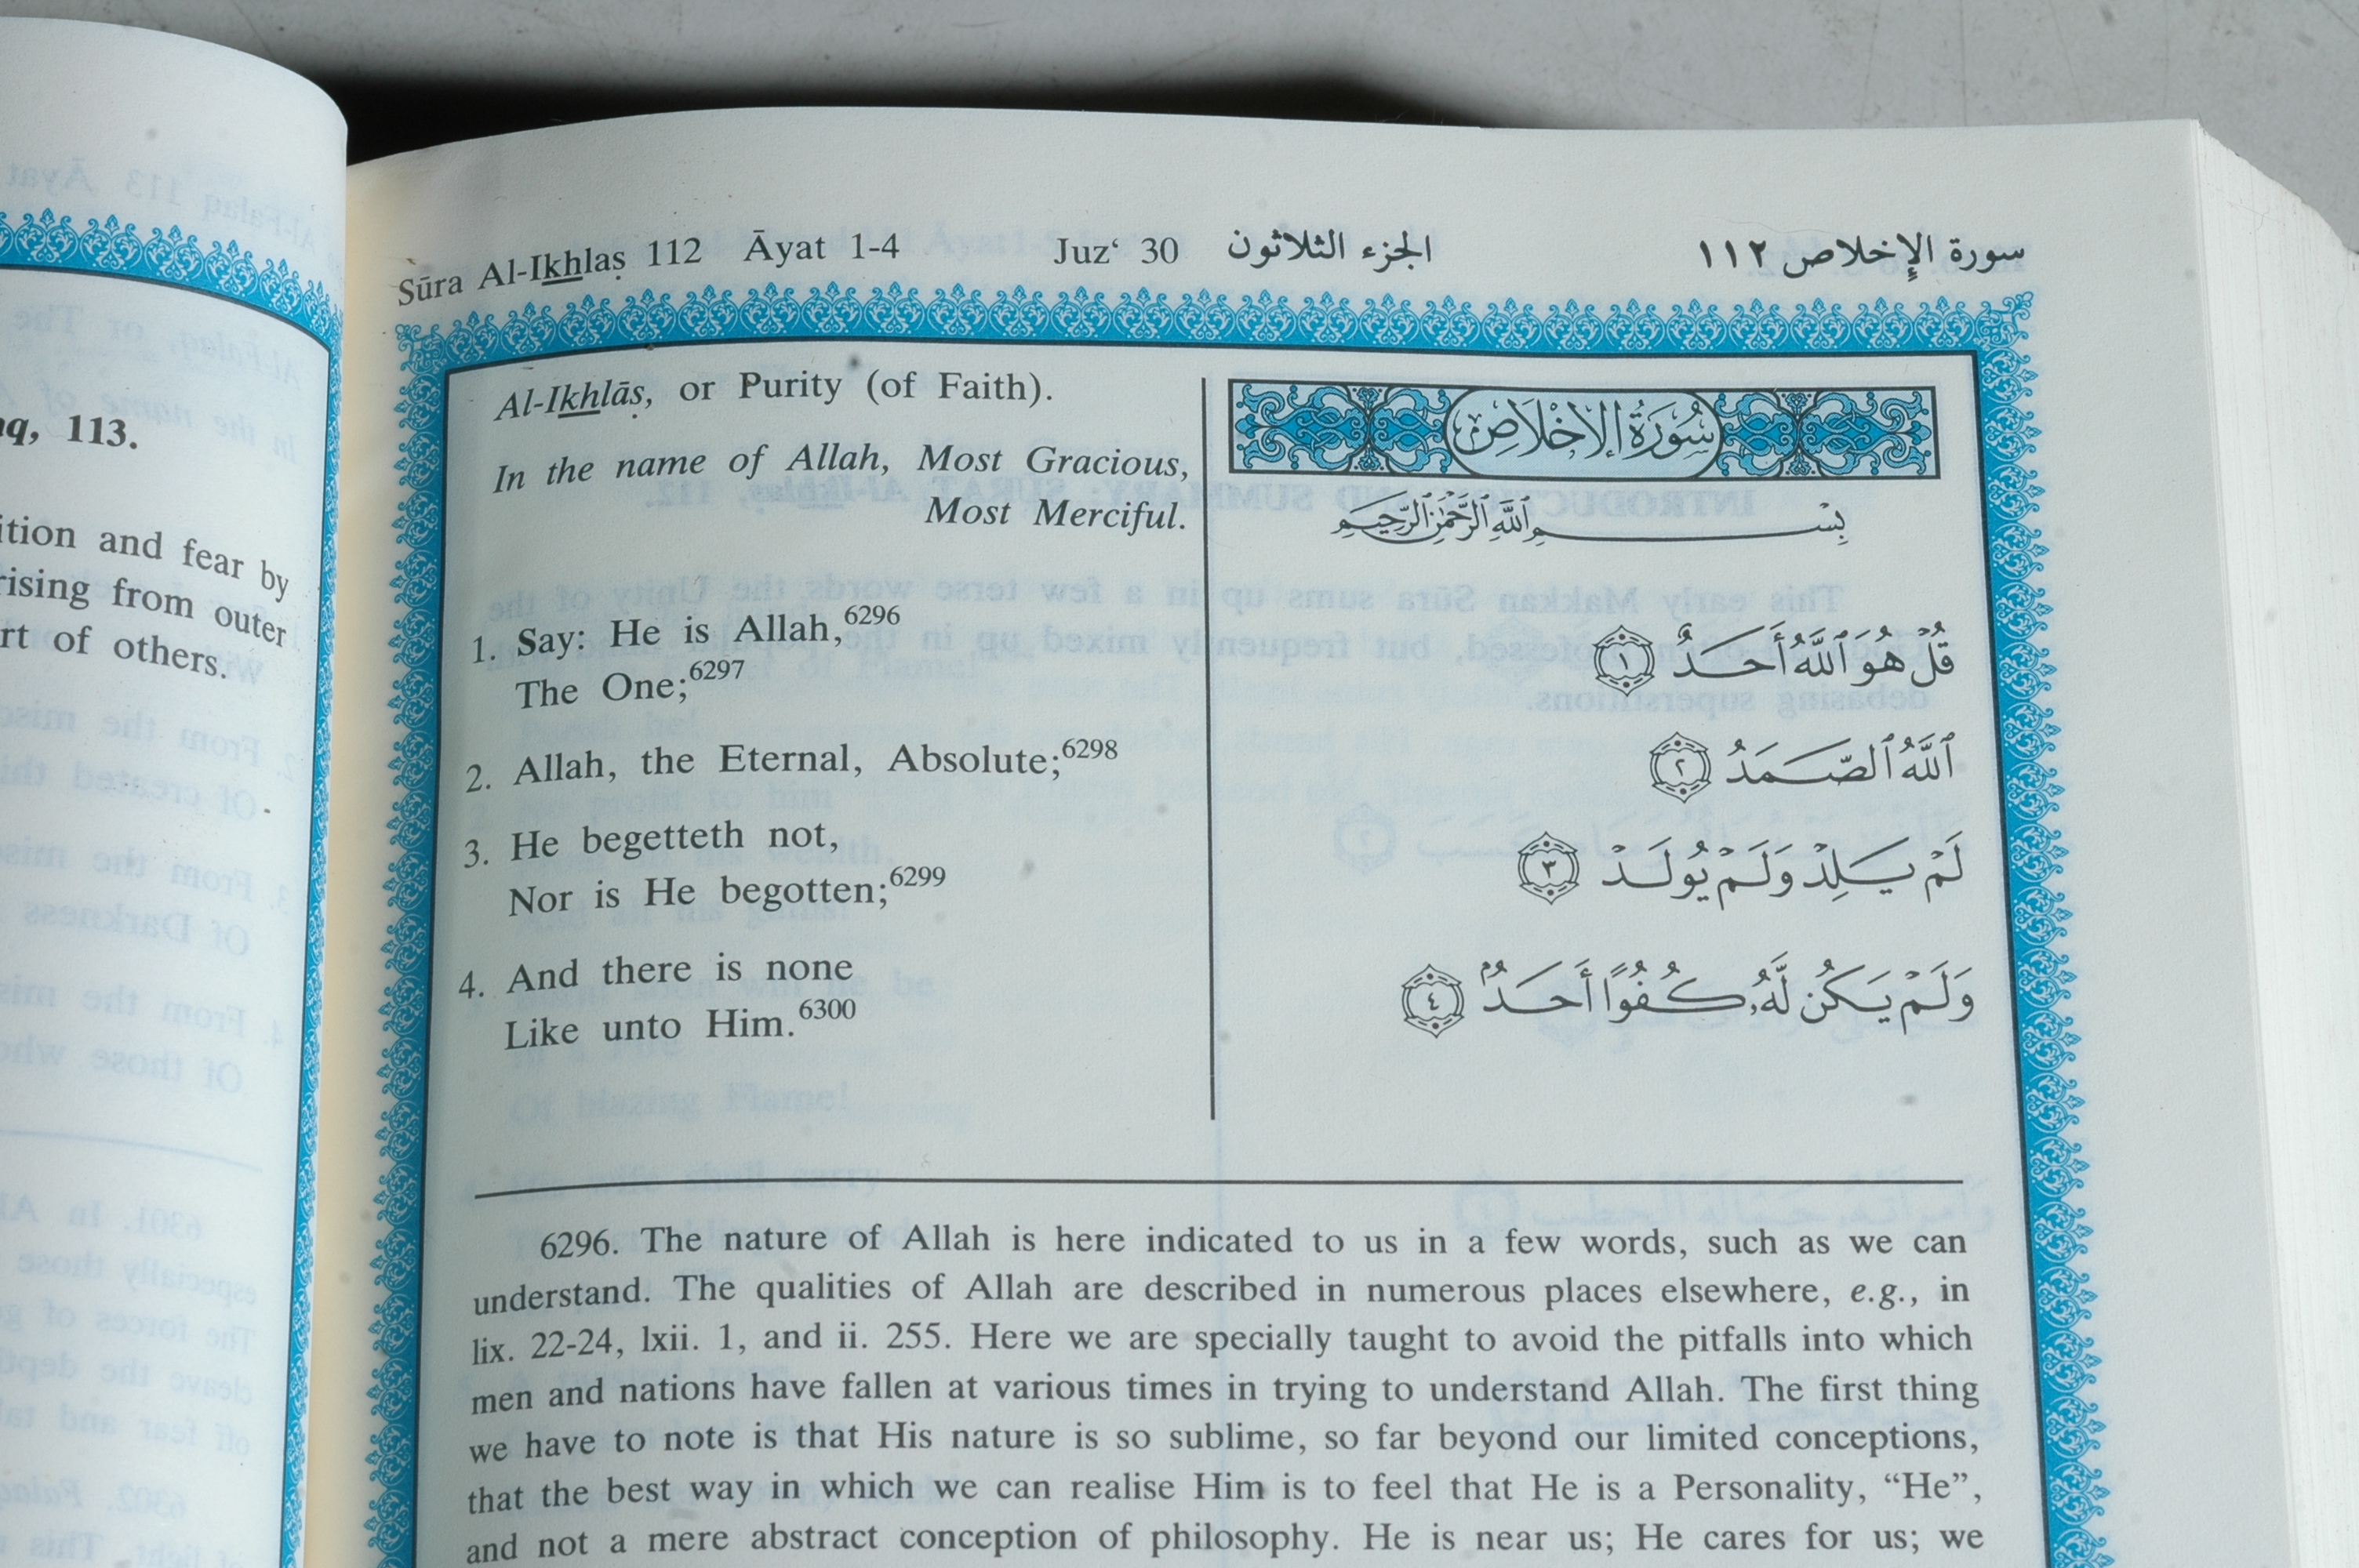 Sūra Al-Ikhlaṣ 112 Āyat 1-4 Juz‘ 30 الجزء الثلاثون سورة الإخلاص ١١٢
Al-Ikhlāṣ, or Purity (of Faith).
In the name of Allah, Most Gracious,
Most Merciful.
1. Say: He is Allah,6296
The One;6297
2. Allah, the Eternal, Absolute;6298
3. He begetteth not,
Nor is He begotten;6299
4. And there is none
Like unto Him.6300
سُورَةُ الإِخْلَاصِ
بِسْمِ ٱللَّهِ ٱلرَّحْمَٰنِ ٱلرَّحِيمِ
قُلْ هُوَ ٱللَّهُ أَحَدٌ ١
ٱللَّهُ ٱلصَّمَدُ ٢
لَمْ يَلِدْ وَلَمْ يُولَدْ ٣
وَلَمْ يَكُن لَّهُۥ كُفُوًا أَحَدٌۢ ٤
6296. The nature of Allah is here indicated to us in a few words, such as we can
understand. The qualities of Allah are described in numerous places elsewhere, e.g., in
lix. 22-24, lxii. 1, and ii. 255. Here we are specially taught to avoid the pitfalls into which
men and nations have fallen at various times in trying to understand Allah. The first thing
we have to note is that His nature is so sublime, so far beyond our limited conceptions,
that the best way in which we can realise Him is to feel that He is a Personality, “He”,
and not a mere abstract conception of philosophy. He is near us; He cares for us; we
113.
and fear by
from outer
of others.